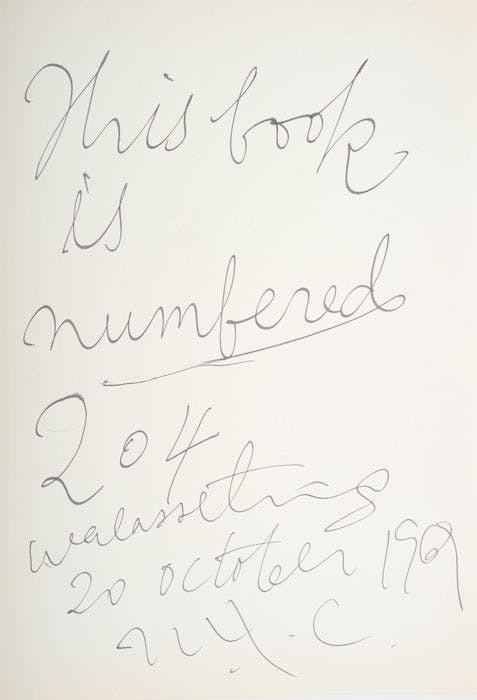 This book
is
numbered
204
walasseting
20 october 1969
N.Y.C.